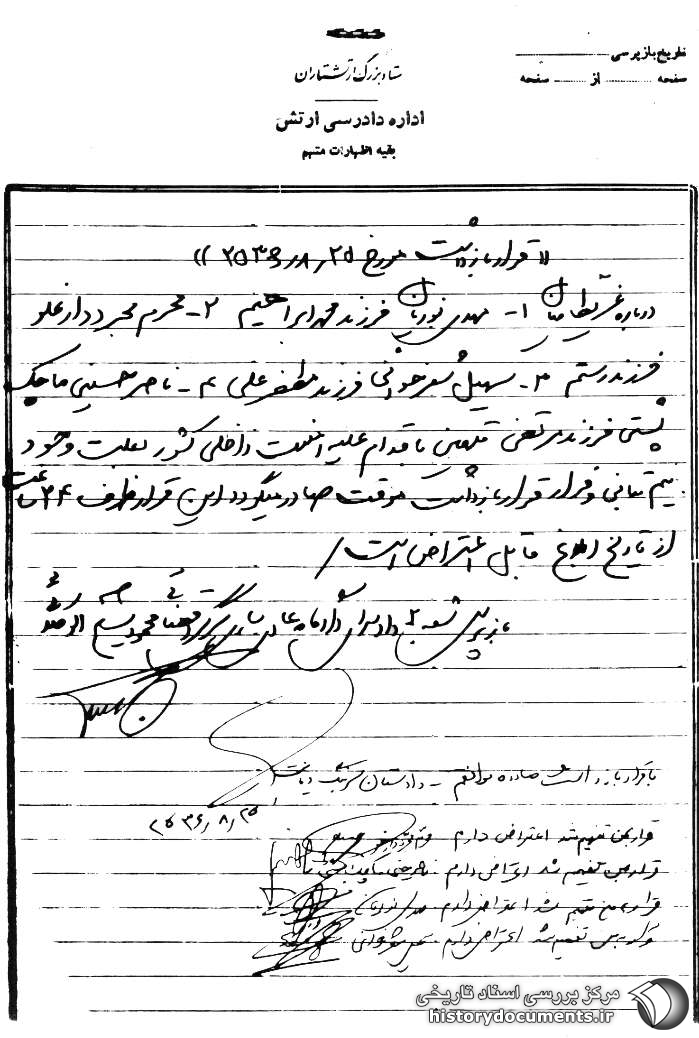 ستاد بزرگ ارتشتاران
اداره دادرسی ارتش
بقیه اظهارات متهم
تاریخ بازپرسی
صفحه از صفحه
«قرار بازداشت مورخ ۲۵٫۸٫۲۵۳۶»
درباره غیرنظامیان ۱- مهدی نوریان فرزند محمدابراهیم ۲- محرم محبرددار علو
فرزند رستم ۳- سهیل فرزند مظفرعلی ۴- ناصر حسینی ماچک
پشتی فرزند مرتضی متهمین باقدام علیه امنیت داخلی کشور بعلت وجود
بیم تبانی و فرار قرار بازداشت موقت صادر میگردد این قرار ظرف ۲۴ ساعت
از تاریخ ابلاغ قابل اعتراض است/
بازپرس شعبه ۲ دادسرای
با قرار بازداشت صادره موافقم - دادستان
۲۵۳۶٫۸٫۲۵
قرار بمن تفهیم شد اعتراض دارم
قرار بمن تفهیم شد اعتراض دارم
قرار بمن تفهیم شد اعتراض دارم
قرار بمن تفهیم شد اعتراض دارم
مرکز بررسی اسناد تاریخی
historydocuments.ir